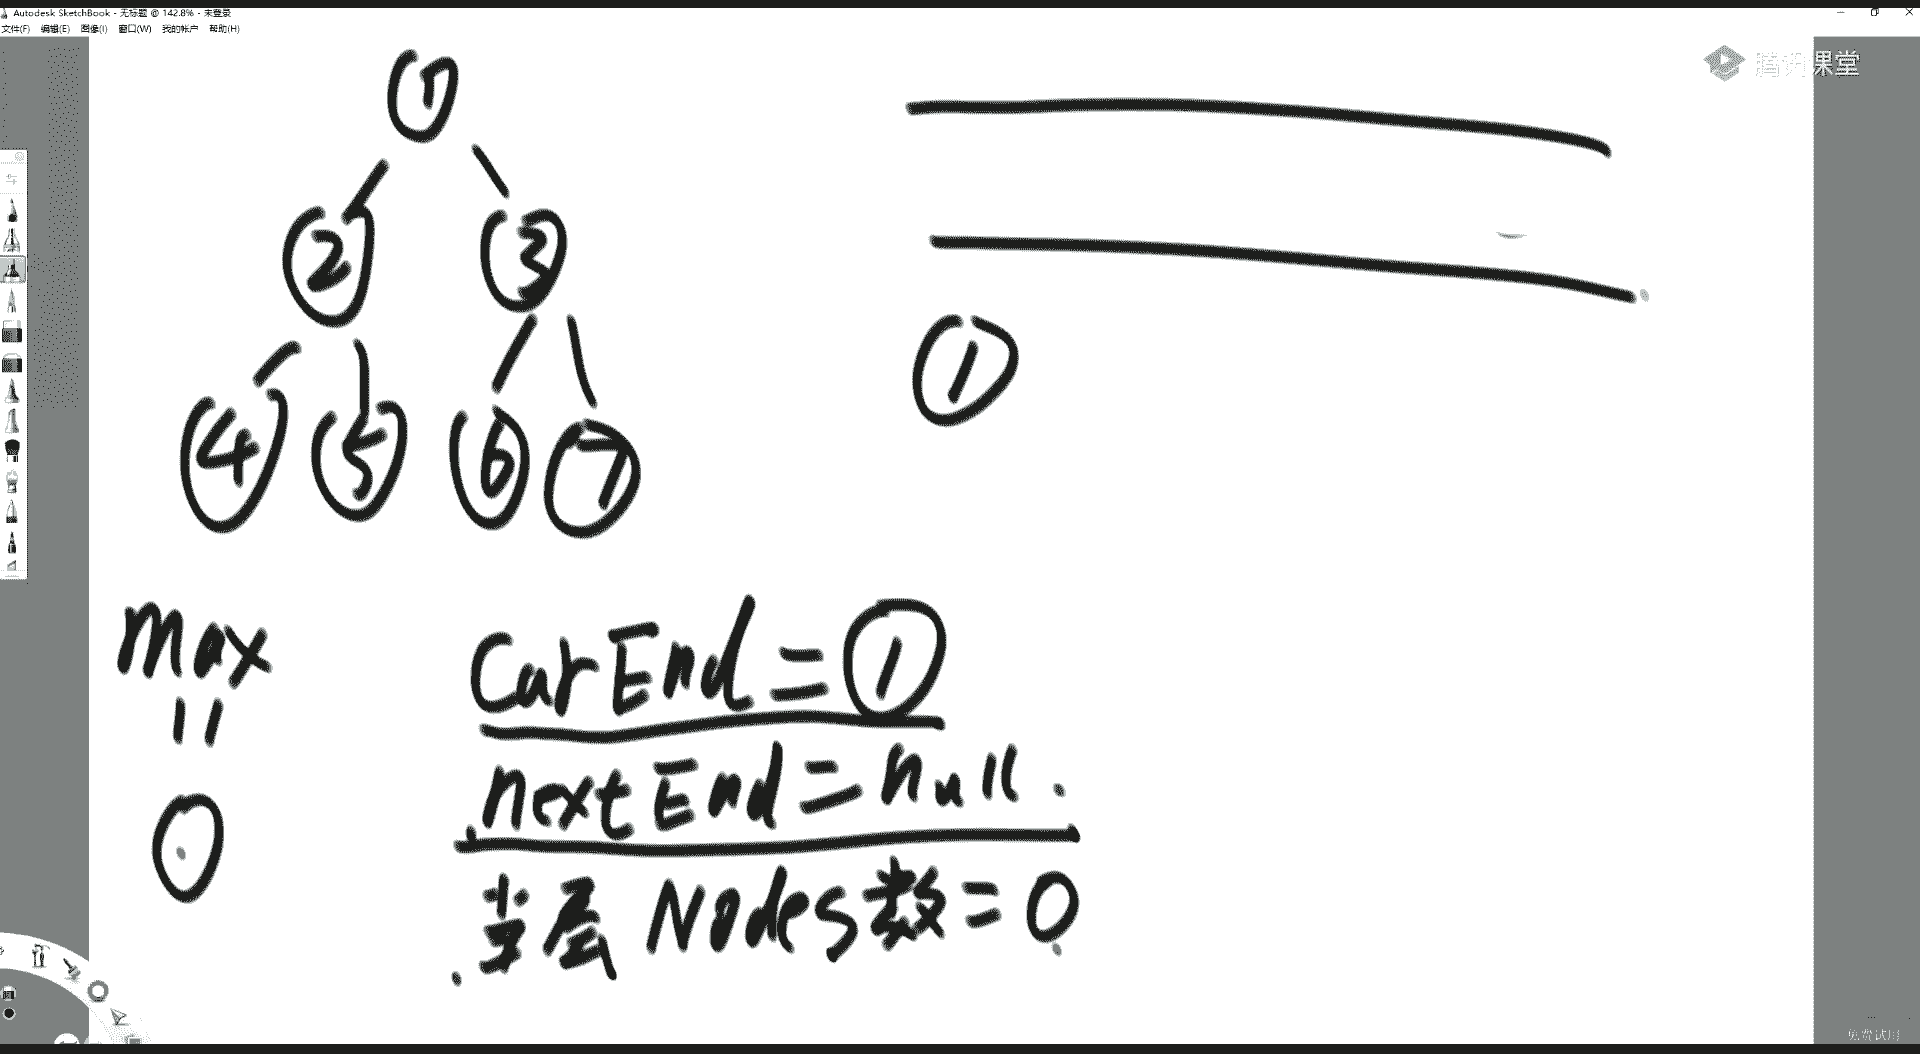 Autodesk SketchBook - 无标题 @ 142.8% - 未登录
文件(F) 编辑(E) 图像(I) 窗口(W) 我的帐户 帮助(H)
腾讯课堂
1
2 3
4 5 6 7
1
max
=
0
CurEnd = 1
nextEnd = null
当层 Nodes数 = 0
免费试用